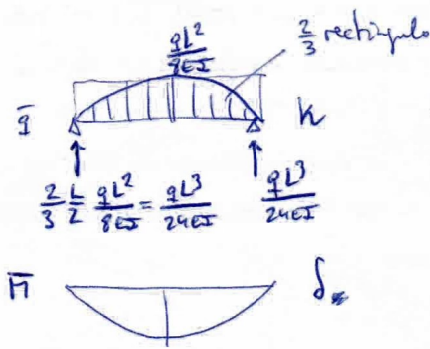 qL²/8EI
2/3 rectángulo
q̄
k
2/3 L/2 qL²/8EI = qL³/24EI
qL³/24EI
M̄
δ